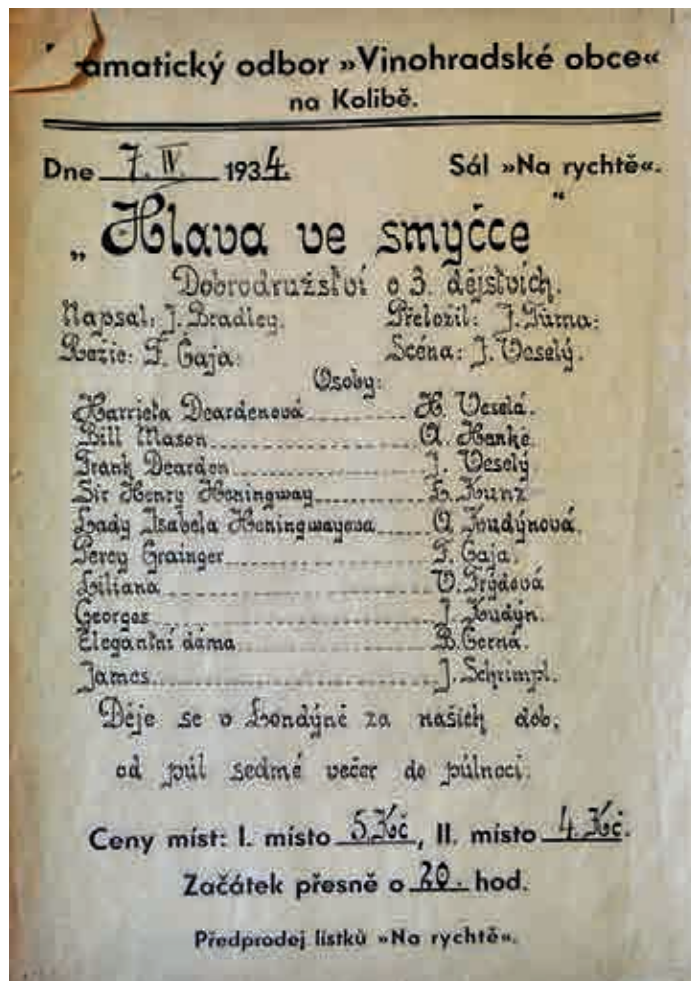 amatický odbor »Vinohradské obce«
na Kolibě.
Dne 7. IV. 1934. Sál »Na rychtě«.
„Hlava ve smyčce“
Dobrodružství o 3. dějstvích.
Napsal: J. Bradley. Přeložil: J. Tůma:
Režie: F. Čaja: Scéna: J. Veselý.
Osoby:
Harrieta Deardenová H. Veselá.
Bill Mason A. Hanke.
Frank Deardon J. Veselý
Sir Henry Heningway L. Kunz
Lady Isabela Heningwayova A. Koudýnová.
Percy Grainger F. Čaja.
Liliana V. Frýdová
Georges J. Koudýn.
Elegantní dáma B. Černá.
James J. Schrimpl.
Děje se v Londýně za našich dob,
od půl sedmé večer do půlnoci.
Ceny míst: I. místo 5 Kč, II. místo 4. Kč.
Začátek přesně o 20. hod.
Předprodej lístků »Na rychtě«.